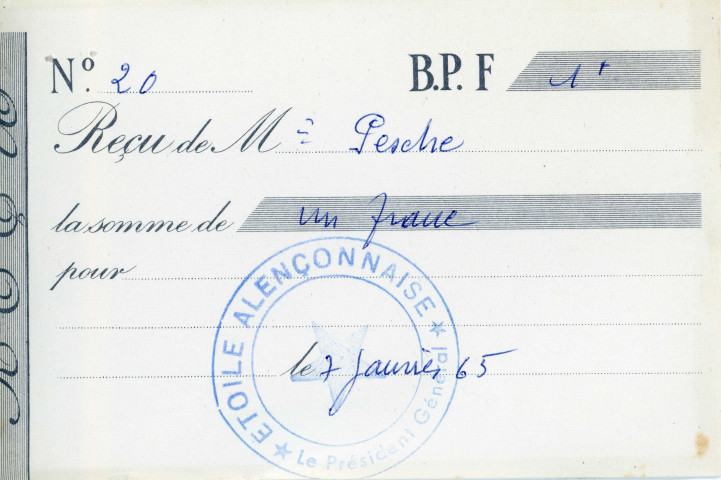 N.º 20 B.P. F 1'
Reçu de M Pesche
la somme de un franc
pour
ÉTOILE ALENÇONNAISE
le 7 Janvier 65
Le Président Général
REÇU